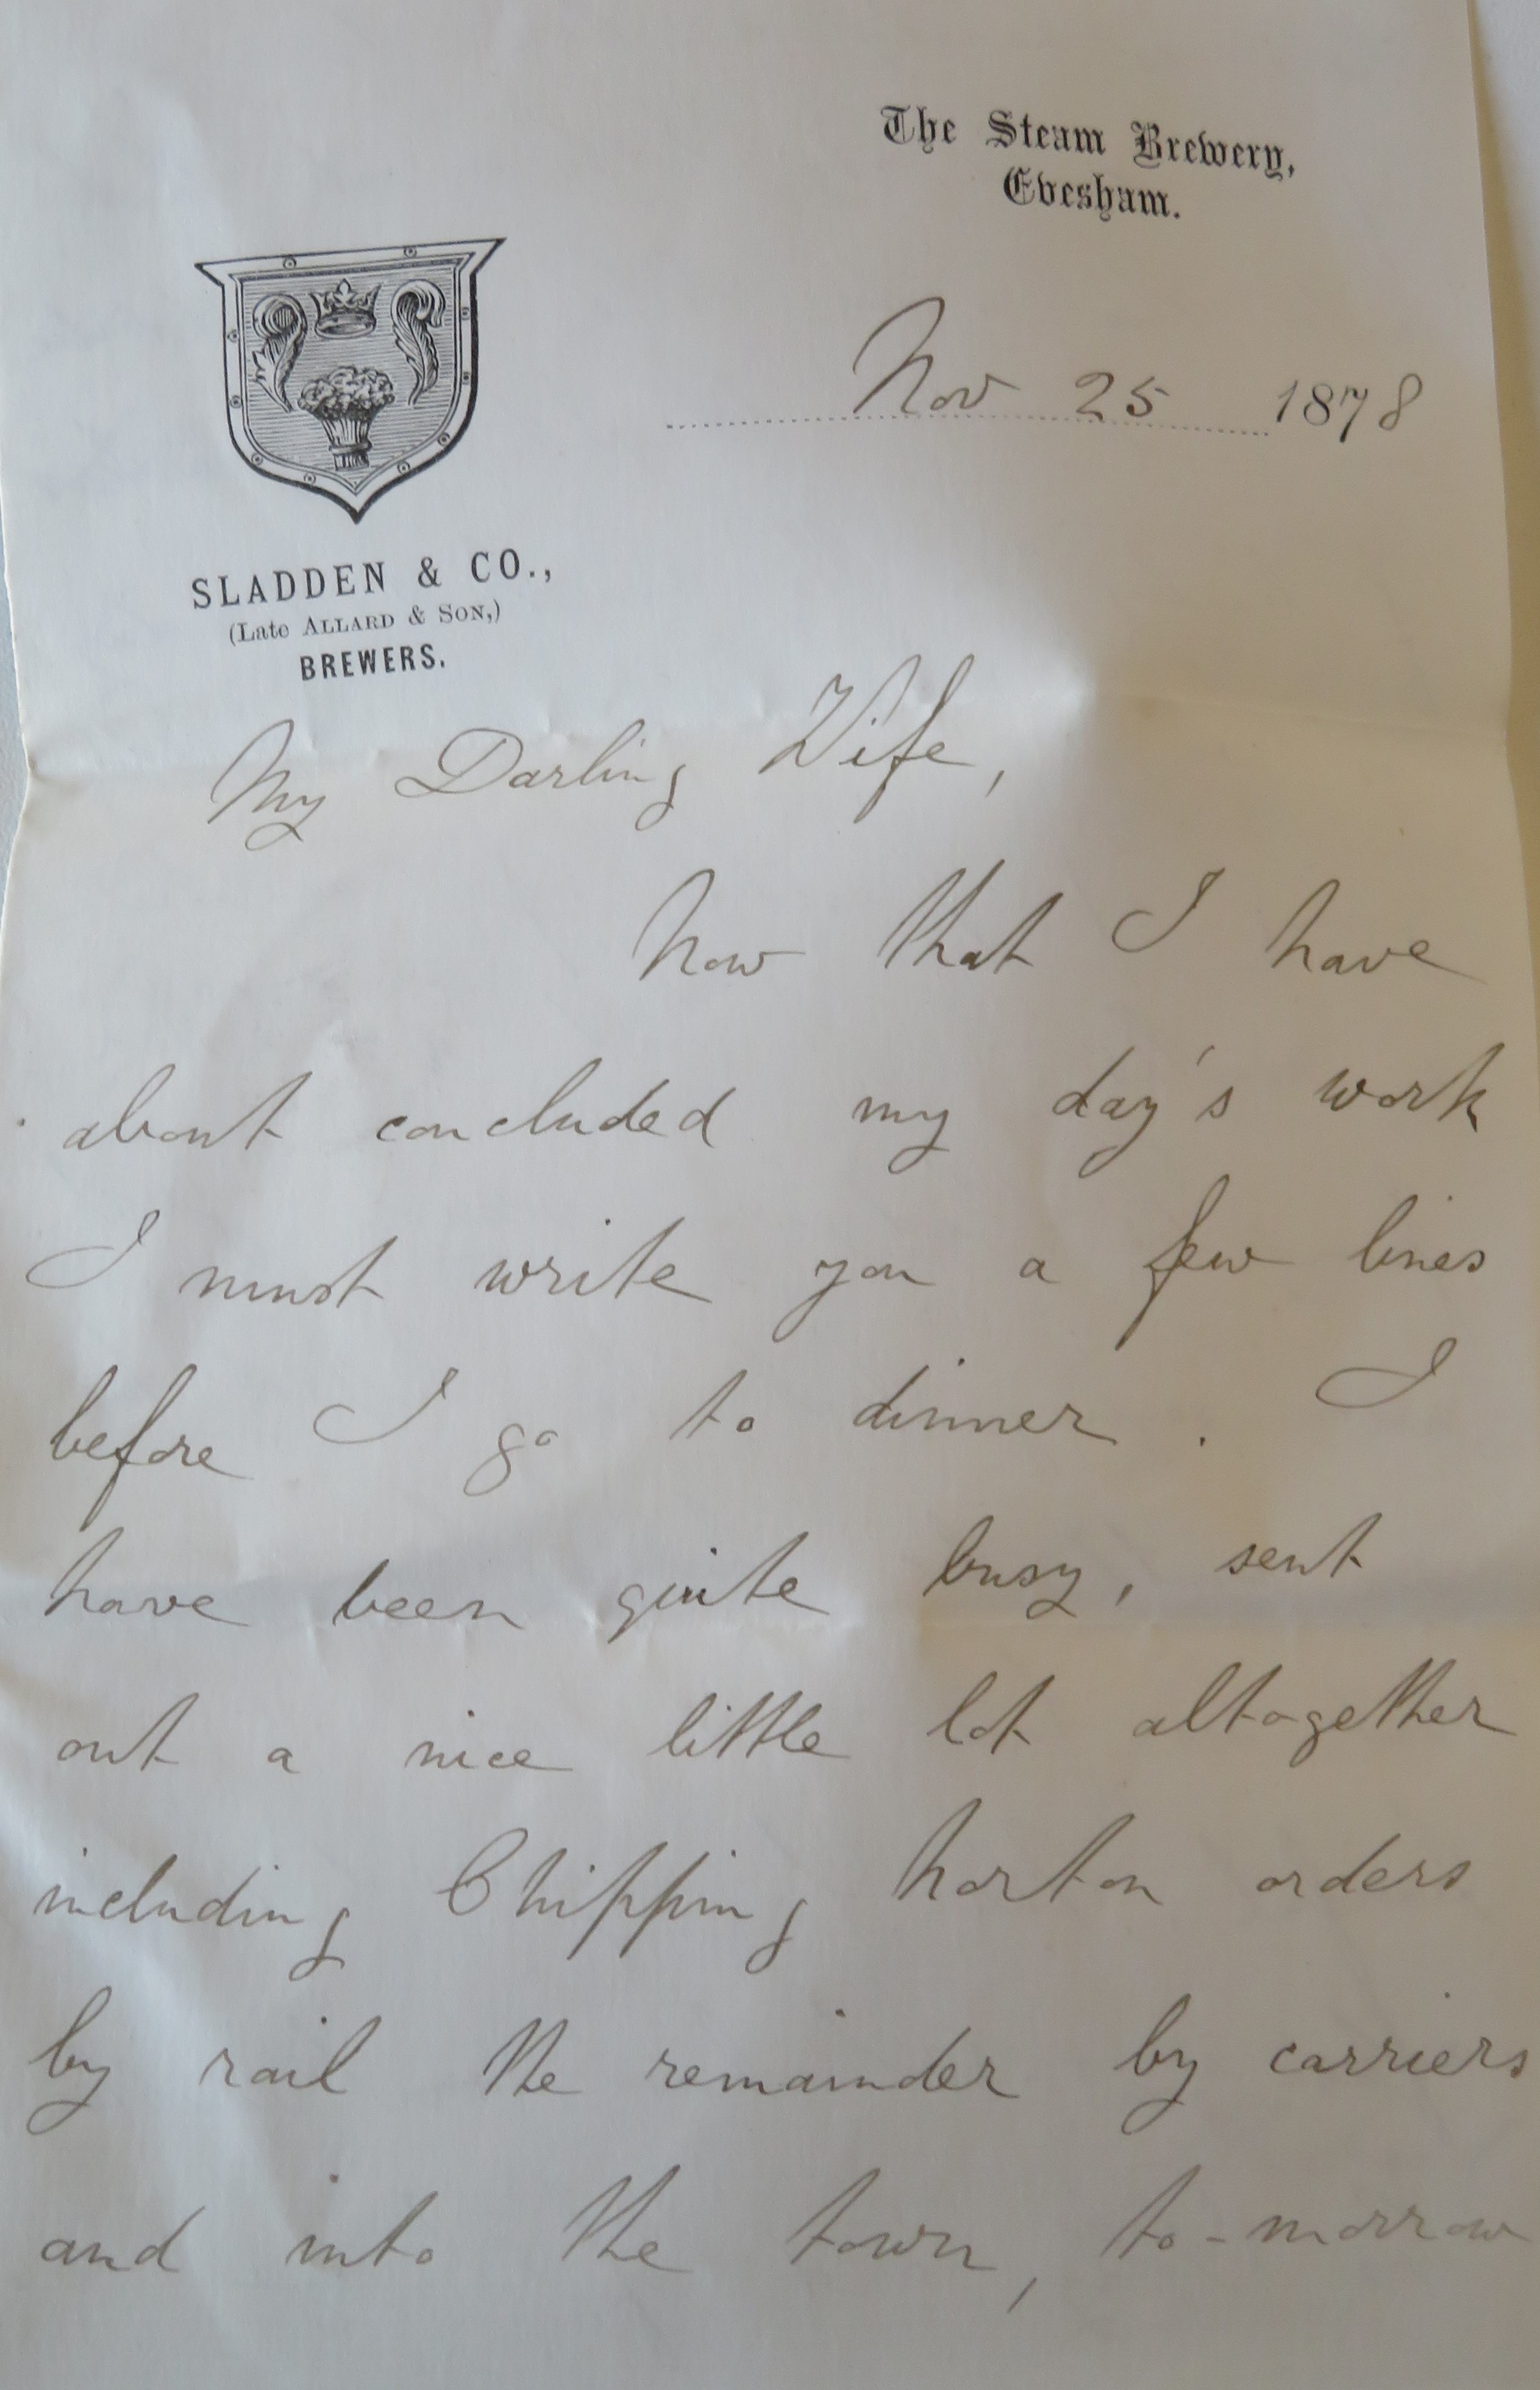 The Steam Brewery,
Evesham.
Nov 25 1878
SLADDEN & CO.,
(Late ALLARD & SON,)
BREWERS.
My Darling Wife,
Now that I have
about concluded my day's work
I must write you a few lines
before I go to dinner. I
have been quite busy, sent
out a nice little lot altogether
including Chipping Norton orders
by rail the remainder by carriers
and into the town, to-morrow